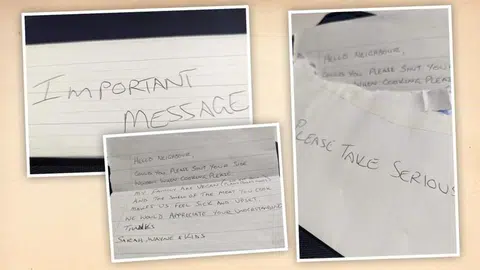 IMPORTANT
MESSAGE
HELLO NEIGHBOUR,
COULD YOU PLEASE SHUT YOUR SIDE
WINDOW WHEN COOKING PLEASE.
MY FAMILY ARE VEGAN
AND THE SMELL OF THE MEAT YOU COOK
MAKES US FEEL SICK AND UPSET.
WE WOULD APPRECIATE YOUR UNDERSTANDING
THANKS
SARAH, WAYNE & KIDS
HELLO NEIGHBOUR,
COULD YOU PLEASE SHUT YOU
WINDOW WHEN COOKING PLEASE
PLEASE TAKE SERIOUS